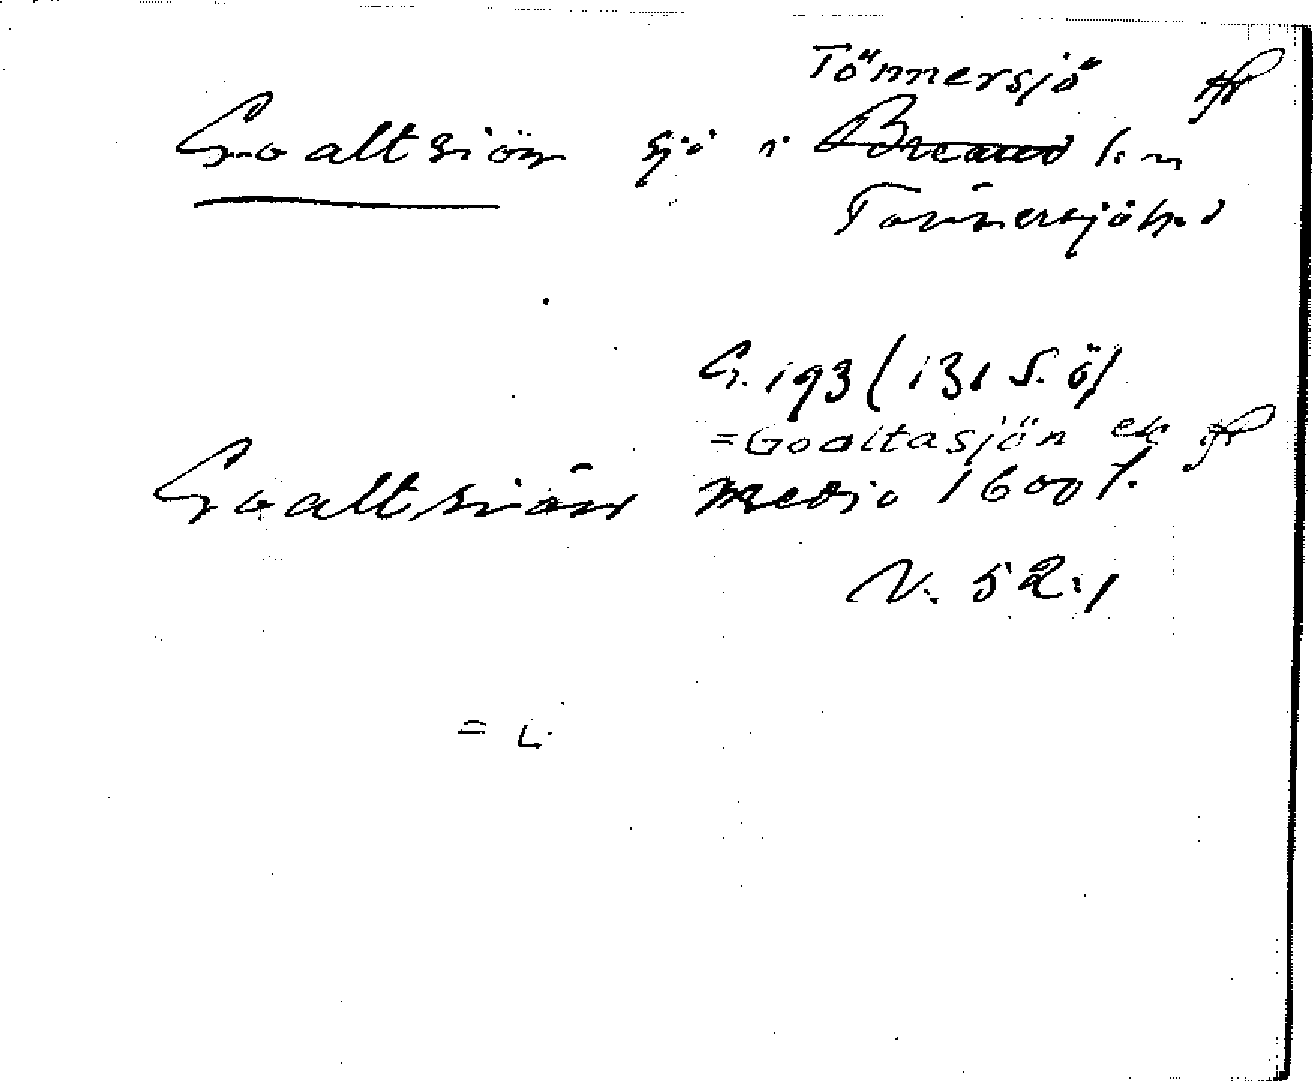 Tönnersjö
Goaltsiön sjö i Breared sn
Tönnersjöhd
G. 193 (131 S. Ö)
=Goaltasjön ek
Goaltsiön medio 1600 t.
V. 52:1
= L.